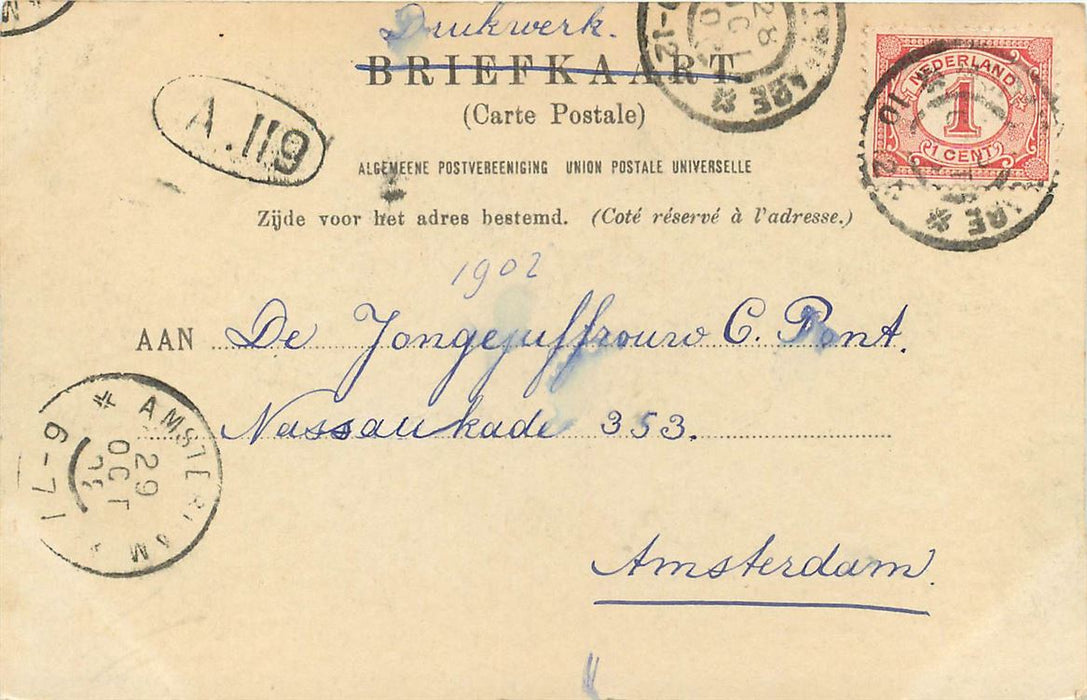 Drukwerk.
BRIEFKAART
(Carte Postale)
ALGEMEENE POSTVEREENIGING UNION POSTALE UNIVERSELLE
Zijde voor het adres bestemd. (Coté réservé à l'adresse.)
A.119
28
OCT
NEDERLAND
1
1 CENT
1902
AAN De Jongejuffrouw C. Pont.
Nassaukade 353.
Amsterdam.
AMSTERDAM
29
OCT
6-7